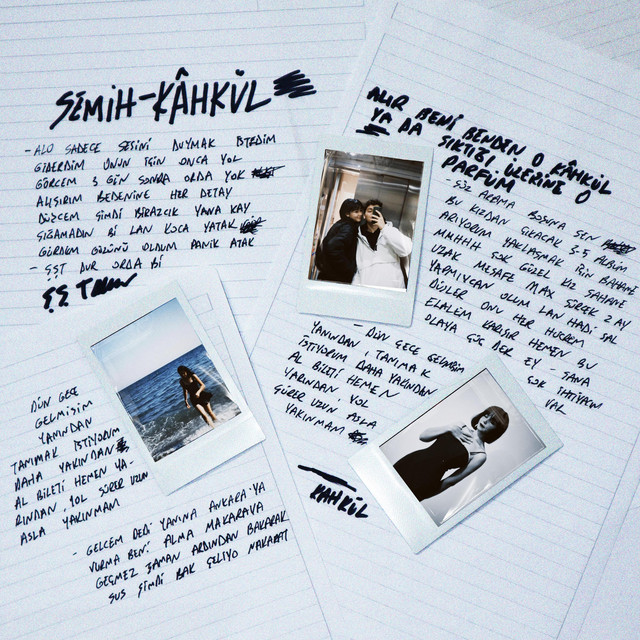 SEMİH-KÂHKÜL
- ALO SADECE SESİNİ DUYMAK İSTEDİM
GİDERDİM ONUN İÇİN ONCA YOL
GÖRCEM 3 GÜN SONRA ORDA YOK
ALIŞIRIM BEDENİNE HER DETAY
DÜZCEM ŞİMDİ BİRAZCIK YANA KAY
SIĞAMADIN Bİ LAN KOCA YATAK
GÖRDÜM GÜLÜNÜ OLDUM PANİK ATAK
- ŞŞT DUR ORDA Bİ
ŞŞ
DÜN GECE
GELMİŞİM
YANINDAN
TANIMAK İSTİYORUM
DAHA YAKINDAN
AL BİLETİ HEMEN YA-
RINDAN, YOL SÜRER UZUN
ASLA YAKINMAM
- GELCEM DEDİ YANINA ANKARA'YA
VURMA BENİ ALMA MAKARAYA
GEÇMEZ ZAMAN ARDINDAN BAKARAK
SUS ŞİMDİ BAK GELİYO NAKARAT
ALIR BENİ BENDEN O KÂHKÜL
YA DA SIKTIĞI ÜZERİNE O
PARFÜM
- SÖZ ARAMA BOŞUNA SEN
BU KIZDAN ÇIKACAK 3-5 ALBÜM
ARIYORUM YAKLAŞMAK İÇİN BAHANE
MMHHH ÇOK GÜZEL KIZ ŞAHANE
UZAK MESAFE MAX SÜREK 2 AY
YAPMIYCAN OĞLUM LAN HADİ SAL
DÜŞLER ONU HER HÜCREM
ELALEM KARIŞIR HEMEN BU
OLAYA GÜÇ DER EY - SANA
ÇOK İHTİYACIM
VAR
- DÜN GECE GELMİŞİM
YANINDAN, TANIMAK
İSTİYORUM DAHA YAKINDAN
AL BİLETİ HEMEN
YARINDAN, YOL
SÜRER UZUN ASLA
YAKINMAM
KAHKÜL